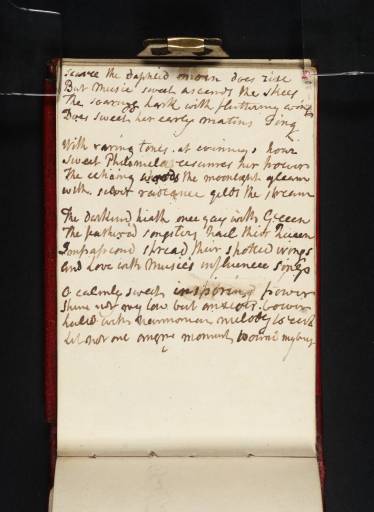 scarce the dapled morn does rise
But Music sweet ascends the skies
The soaring lark with fluttering wing
Does sweet her early matins Sing
With varing tones. at evening,s hour
Sweet Philomela resumes her powers
The echoing woods the moonlight gleam
with silver radiance gilds the stream
The darkend heath once gay with Green
The feathered songsters hail their Queen
Imprafsond spread their spotted wings
and Love with Music's influence sings
O calmly sweet inspiring power
Shine not my low but anxious Bower
with harmonious melody
Let not one moment